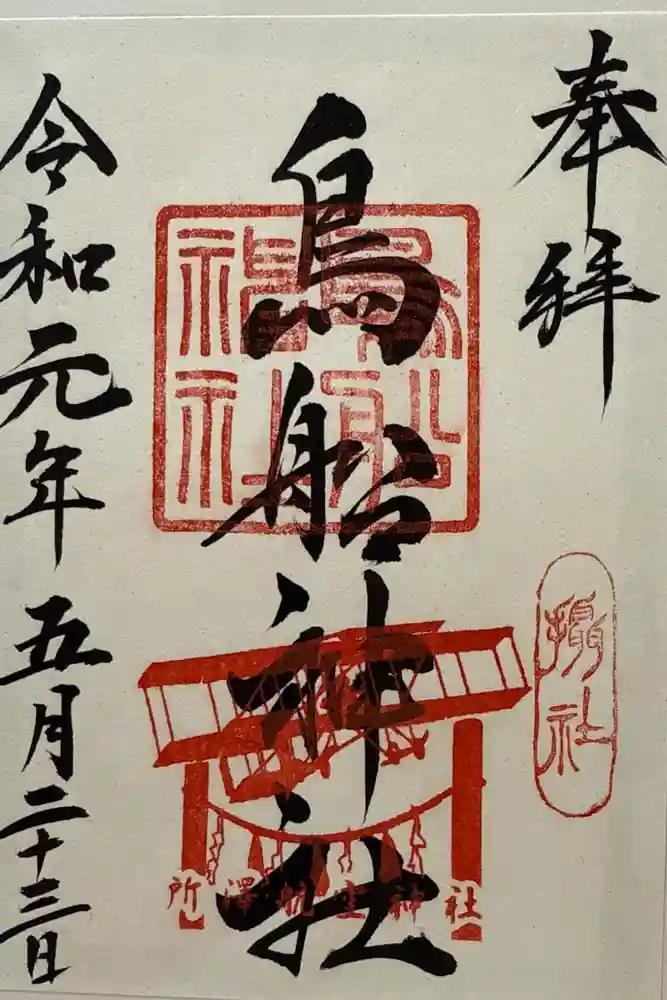 奉拝
攝社
鳥船神社
鳥船神社
所澤航空神社
令和元年五月二十三日